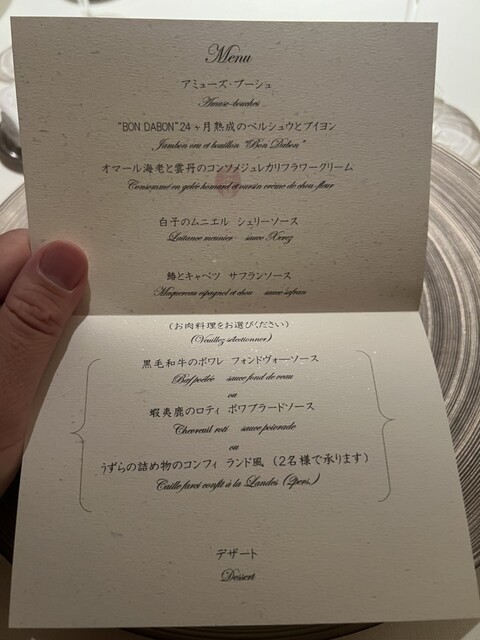 Menu
アミューズ・ブーシュ
Amuse-bouches
"BON DABON"24ヶ月熟成のペルシュウとブイヨン
Jambon cru et bouillon "Bon Dabon"
オマール海老と雲丹のコンソメジュレカリフラワークリーム
Consommé en gelée homard et oursin crème de chou-fleur
白子のムニエル シェリーソース
Laitance meunier sauce Xerez
鰆とキャベツ サフランソース
Maquereau espagnol et chou sauce safran
(お肉料理をお選びください)
(Veuillez sélectionner)
黒毛和牛のポワレ フォンドヴォーソース
Bœf poêlée sauce fond de veau
ou
蝦夷鹿のロティ ポワブラードソース
Chevreuil roti sauce poivrade
ou
うずらの詰め物のコンフィ ランド風 (2名様で承ります)
Caille farci confit à la Landes (2pers.)
デザート
Dessert